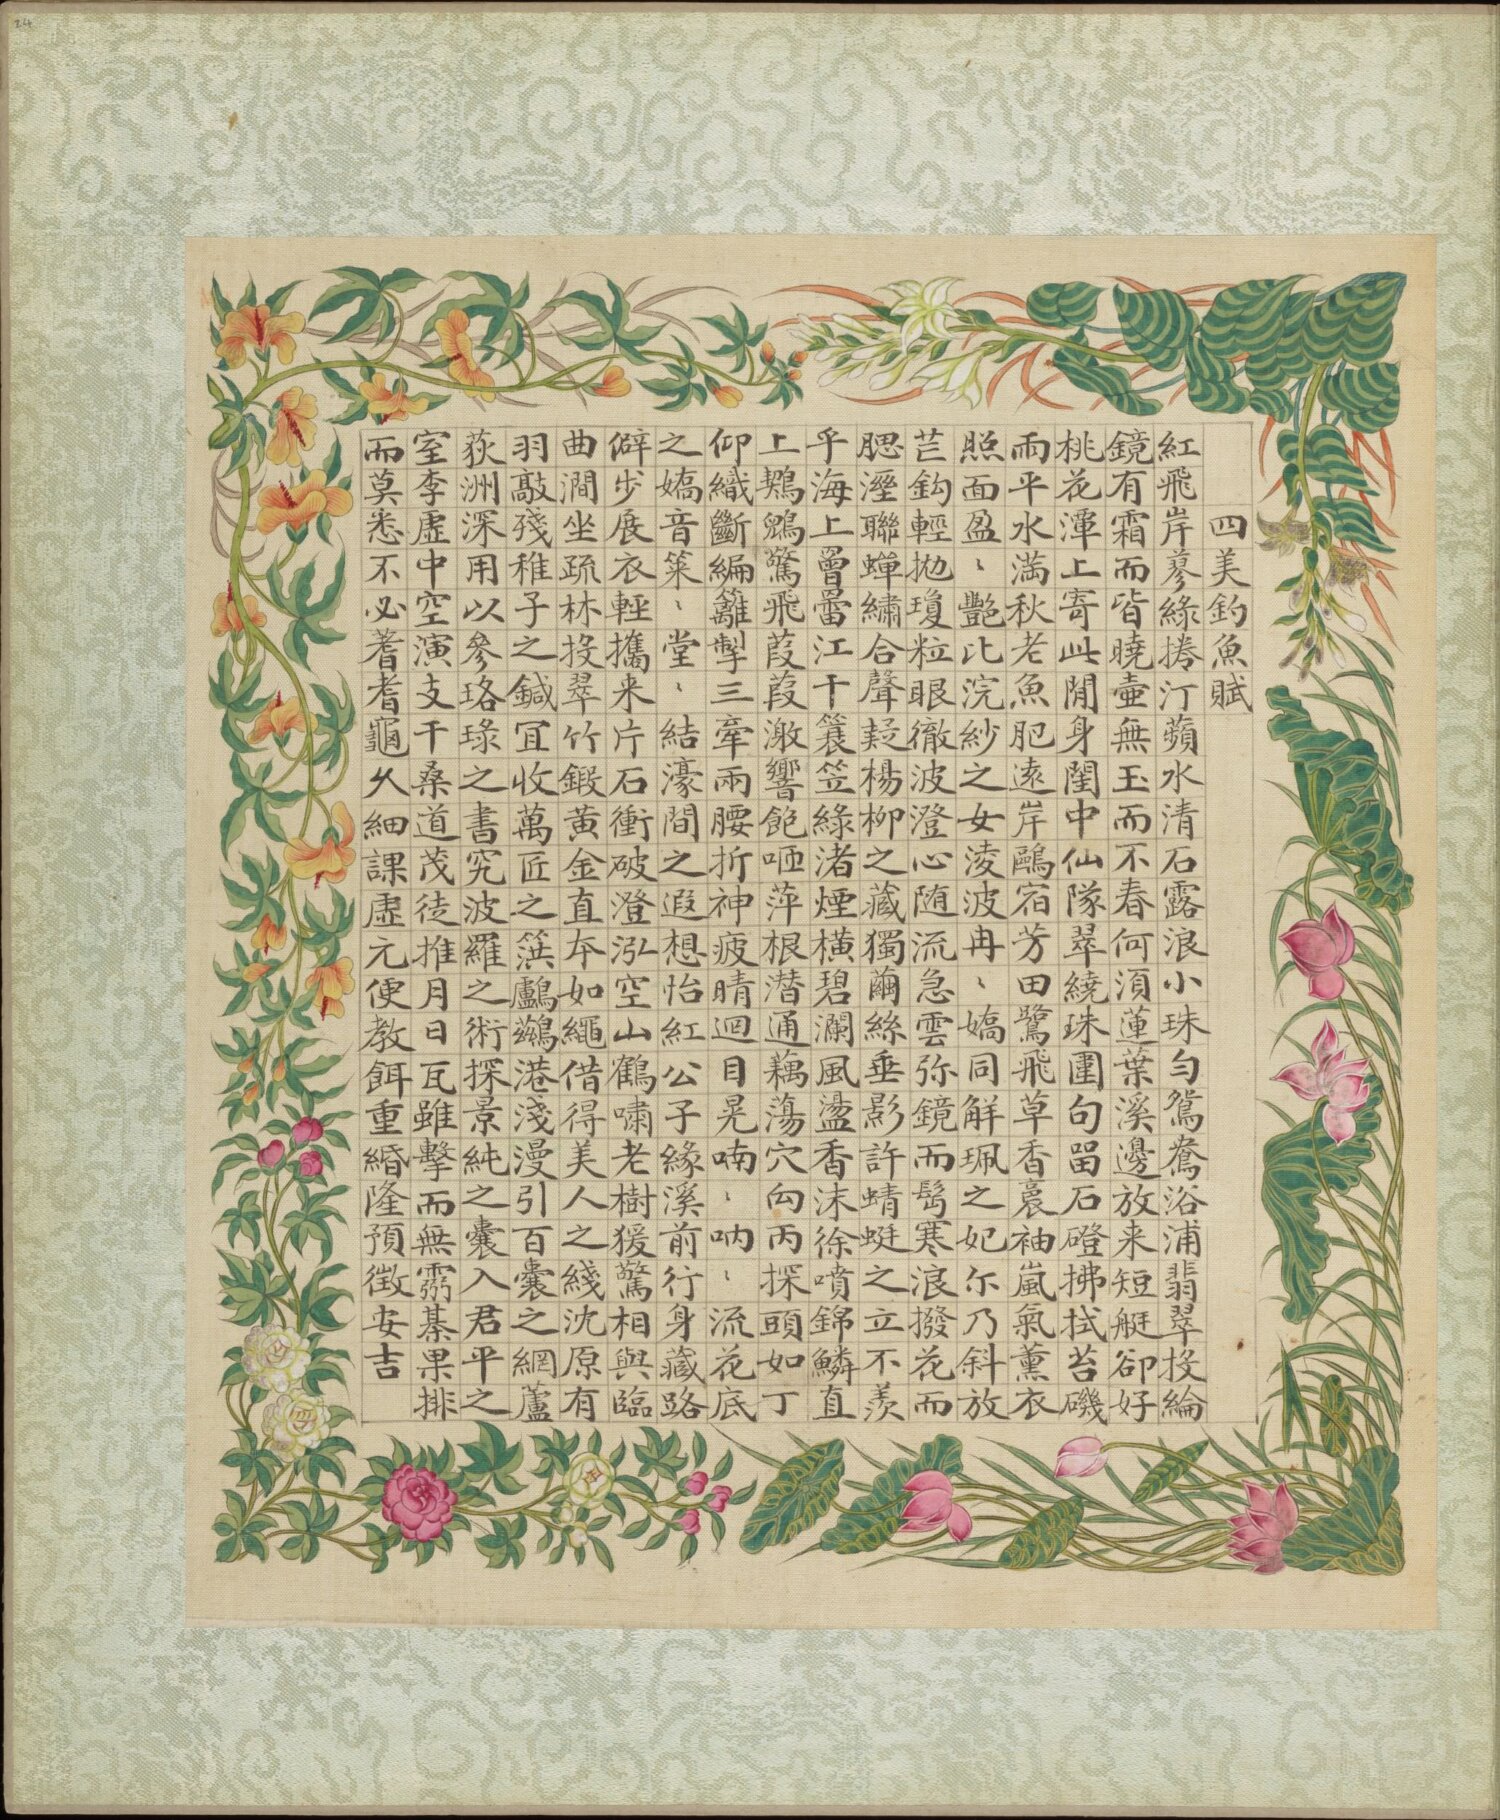 24
四美釣魚賦
紅飛岸蓼綠捲汀蘋水清石露浪小珠勻鴛鴦浴浦翡翠投綸
鏡有霜而皆曉壺無玉而不春何須蓮葉溪邊放来短艇卻好
桃花潭上寄此閒身閨中仙隊翠繞珠圍句留石磴拂拭苔磯
雨平水滿秋老魚肥遠岸鷗宿芳田鷺飛草香裛袖嵐氣薰衣
照面盈〻艷比浣紗之女淩波冉〻嬌同解珮之妃尓乃斜放
芒鈎輕拋瓊粒眼徹波澄心随流急雲弥鏡而髩寒浪撥花而
腮溼聯蟬繡合聲疑楊柳之藏獨繭絲垂影許蜻蜓之立不羨
乎海上曾罾江干簑笠綠渚煙橫碧瀾風盪香沫徐噴錦鱗直
上鶒鵁驚飛葭葭激響飽咂萍根潛通藕蕩穴向丙探頭如丁
仰織斷編籬掣三牽兩腰折神疲睛迴目晃喃〻吶〻流花底
之嬌音篥〻堂〻結濠間之遐想怡紅公子緣溪前行身藏路
僻步展衣輕攜来片石衝破澄泓空山鶴嘯老樹猨驚相與臨
曲澗坐疏林投翠竹鍛黃金直夲如繩借得美人之綫沈原有
羽敲殘稚子之鍼冝收萬匠之篊鸕鷀港淺漫引百囊之網蘆
荻洲深用以參珞琭之書究波羅之術探景純之囊入君平之
室李虛中空演支干桑道茂徒推月日瓦雖擊而無霛棊果排
而莫悉不必蓍耆龜久細課虛元便教餌重緡隆預徵安吉